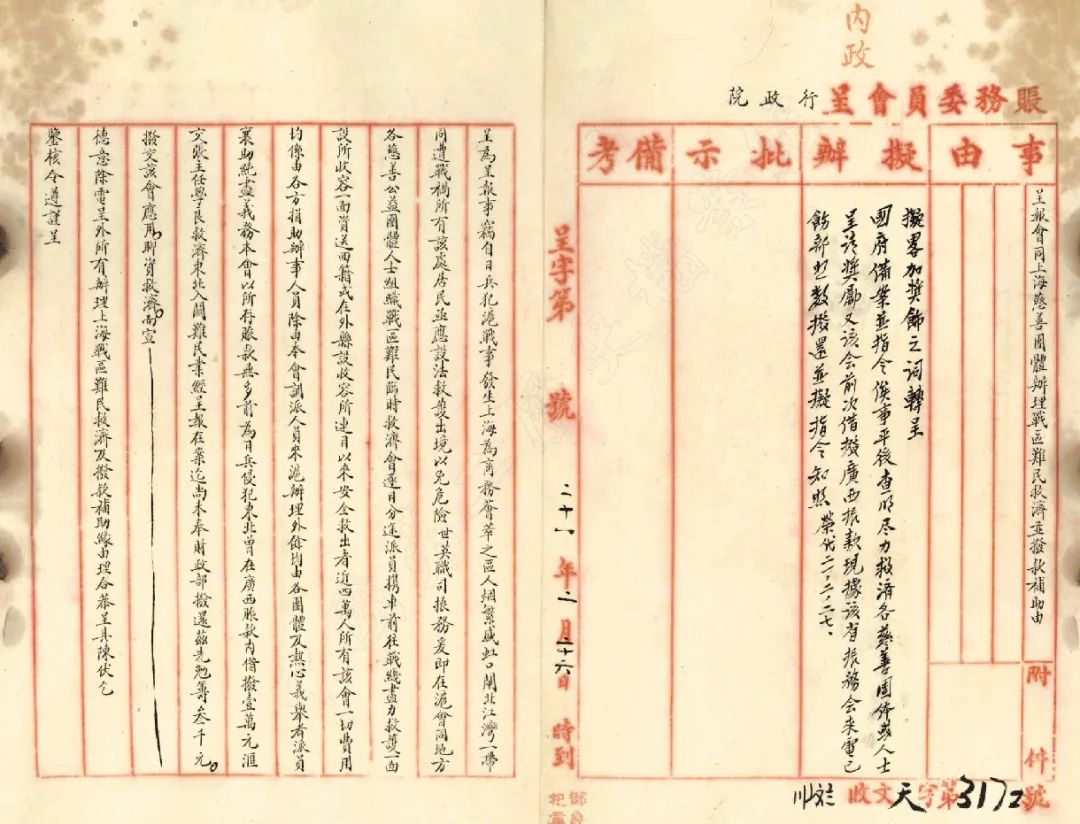 內政
賬務委員會呈行政院
事由
擬辦
批示
備考
呈報會同上海慈善團體辦理戰區難民救濟並撥款補助由
附件
擬畧加獎飾之詞轉呈
國府備案並指令俟事平後查明尽力救濟各慈善團体或人士
呈請獎勵又該会前次借撥廣西振款現據該省振務会来電已
飭部照数撥還並擬指令知照 榮代 二一、二、二七、
收文天字第3172號
呈字第 號
二十一年二月二十六日 時到
呈為呈報事竊自日兵犯滬戰事發生上海為商務薈萃之區人烟繁盛虹口閘北江灣一帶
同遭戰禍所有該處居民亟應設法救護出境以免危險世英職司振務爰即在滬會同地方
各慈善公益團體人士組織戰區難民臨時救濟會逐日分途派員携車前往戰綫盡力救護一面
設所收容一面資送回籍或在外縣設收容所連日以来安全救出者近四萬人所有該會一切費用
均係由各方捐助辦事人員除由本會調派人員來滬辦理外餘均由各團體及熱心義舉者派員
襄助純盡義務本會以所存賑款無多前為日兵侵犯東北曾在廣西賑款內借撥壹萬元滙
交張主任學良救濟東北入關難民業經呈報在案迄尚未奉財政部撥還茲先勉籌叁千元
撥交該會應用聊資救濟而宣
德意除電呈外所有辦理上海戰區難民救濟及撥款補助緣由理合恭呈具陳伏乞
鑒核令遵謹呈